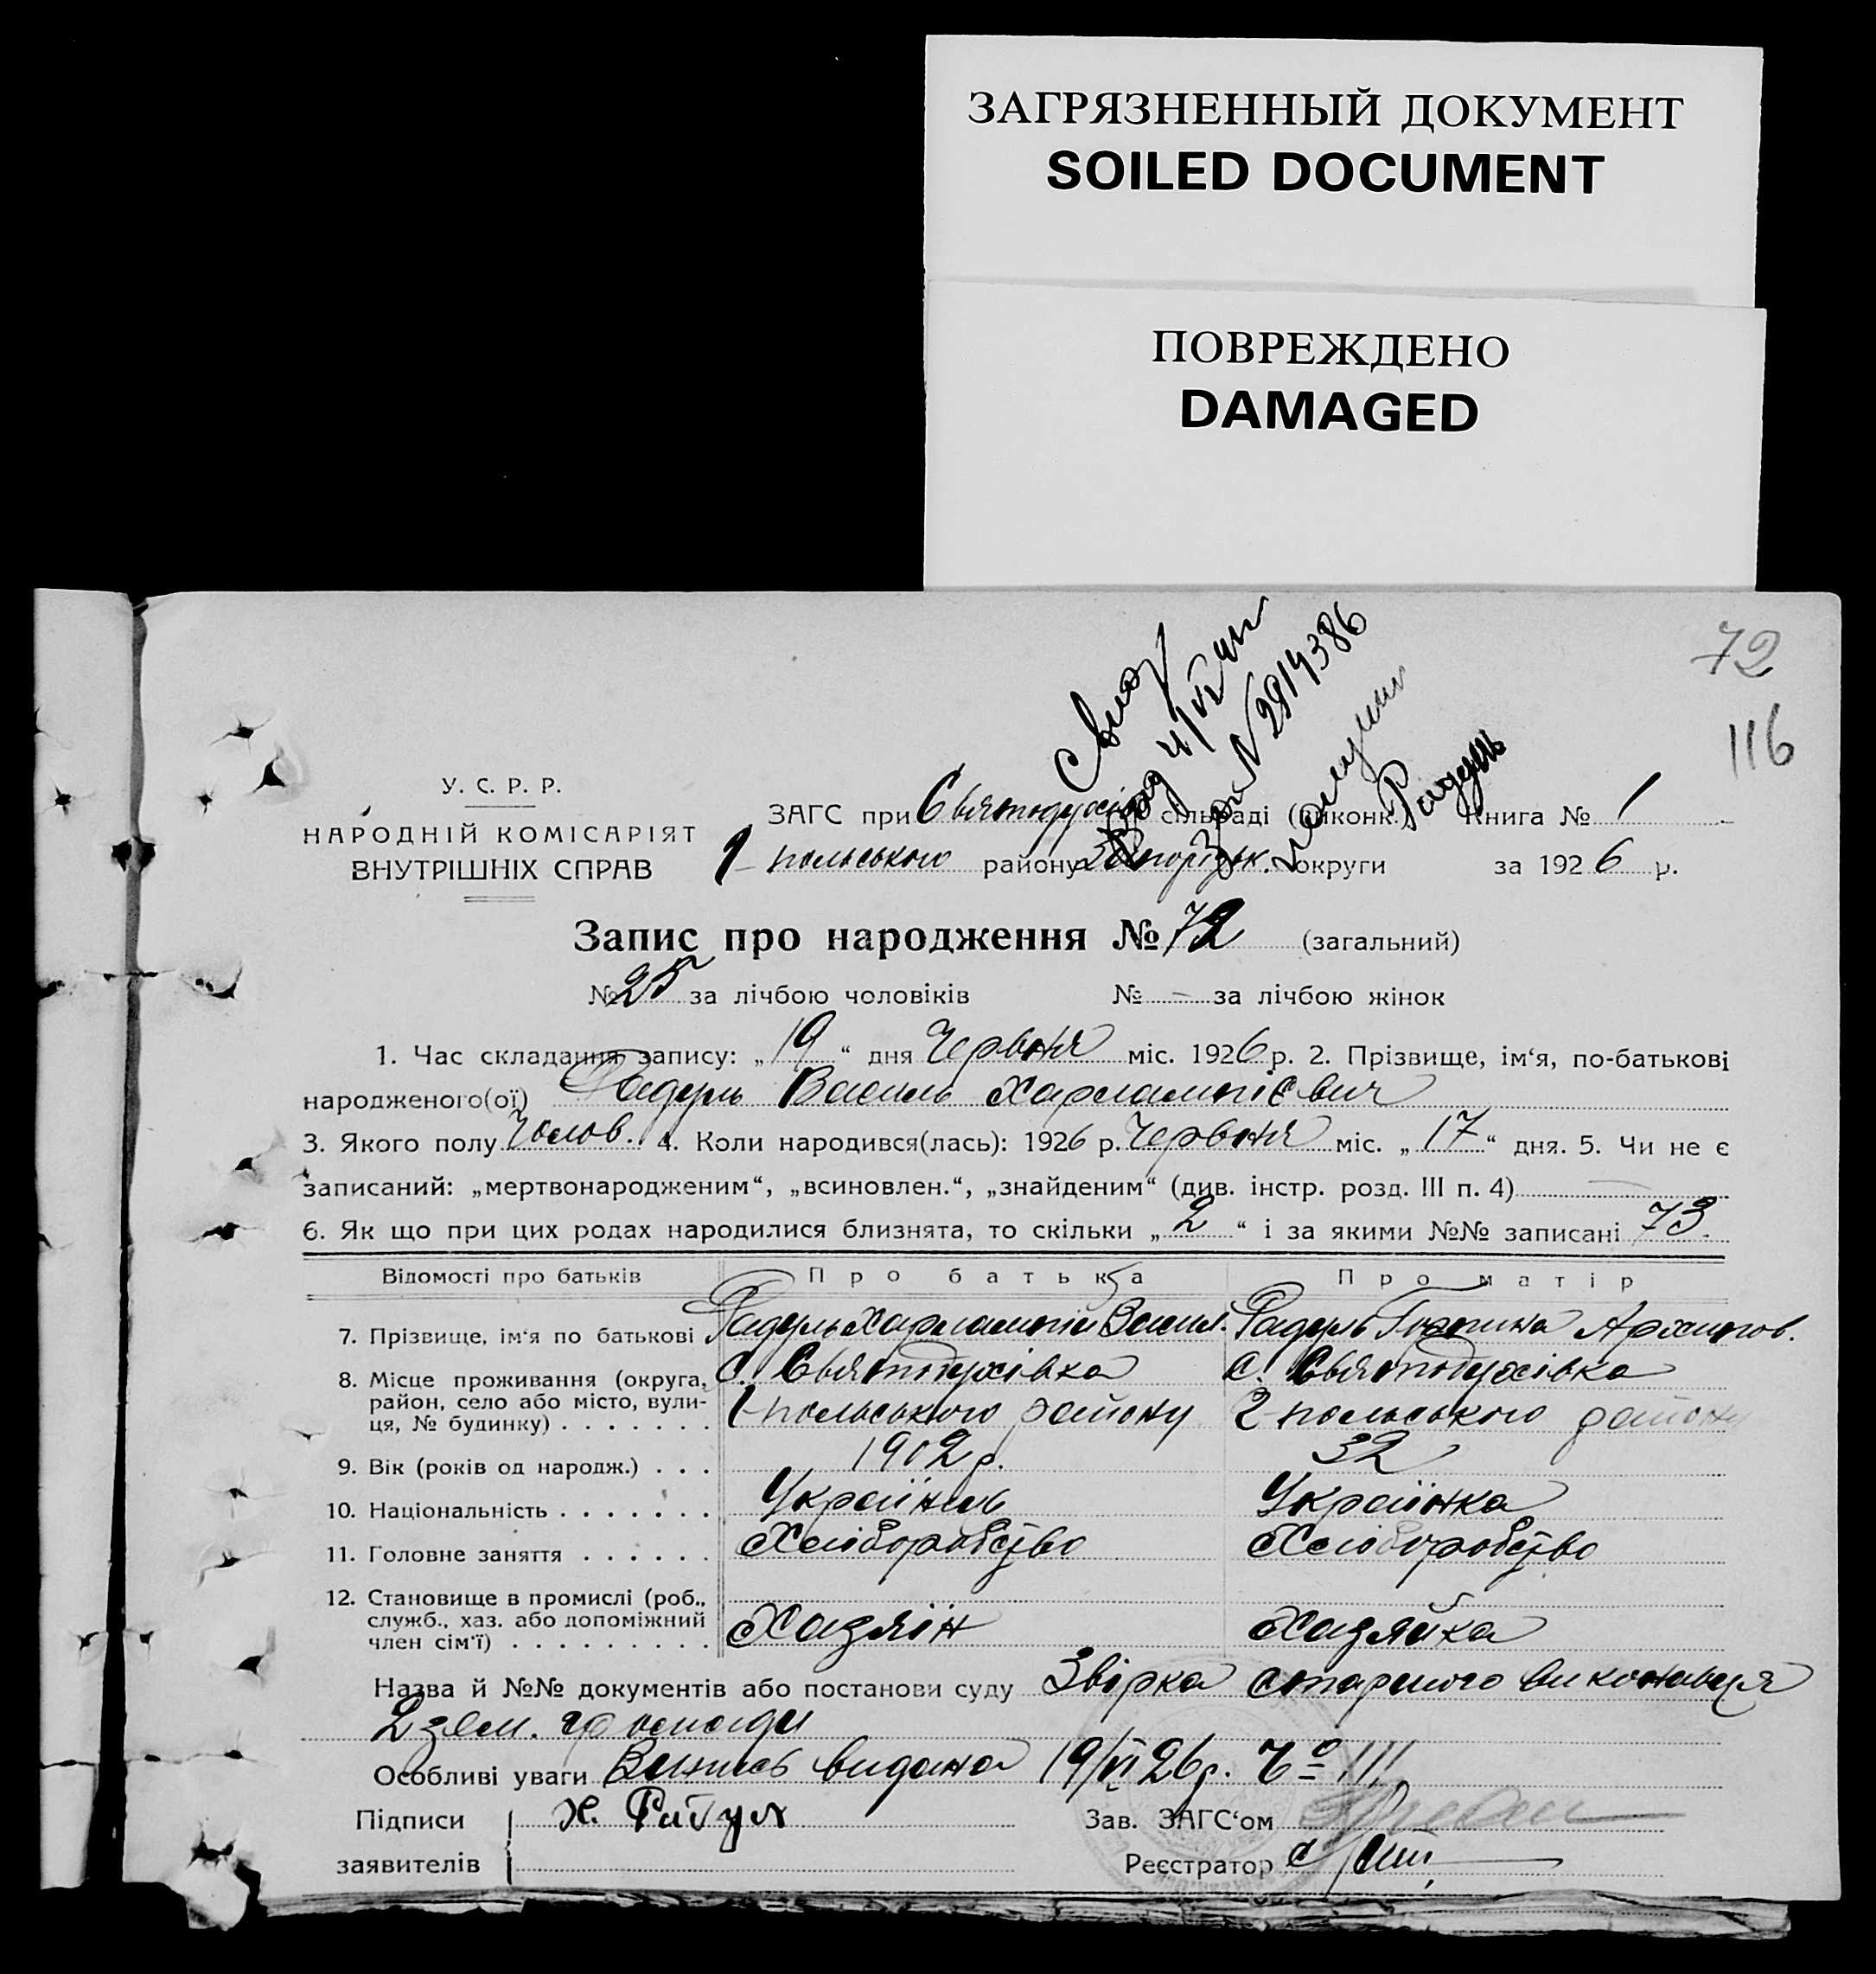 ЗАГРЯЗНЕННЫЙ ДОКУМЕНТ
SOILED DOCUMENT
ПОВРЕЖДЕНО
DAMAGED
72
116
№ 2914386
У. С. Р. Р.
НАРОДНІЙ КОМІСАРІЯТ
ВНУТРІШНІХ СПРАВ
ЗАГС при Святодухів сільраді (виконк.) Книга № 1
польського району Запорізьк. округи за 1926 р.
Запис про народження № 72 (загальний)
№ 25 за лічбою чоловіків № — за лічбою жінок
1. Час складання запису: „19“ дня Червня міс. 1926 р. 2. Прізвище, ім‘я, по-батькові
народженого(ої) Радуль Василь Харлампієвич
3. Якого полу Чолов. 4. Коли народився(лась): 1926 р. Червня міс. „17“ дня. 5. Чи не є
записаний: „мертвонародженим“, „всиновлен.“, „знайденим“ (див. інстр. розд. III п. 4) —
6. Як що при цих родах народилися близнята, то скільки „2“ і за якими №№ записані 73.
Відомості про батьків Про батька Про матір
7. Прізвище, ім‘я по батькові Радуль Харлампій Васил. Радуль Горпина Архипов.
8. Місце проживання (округа, С. Святодухівка с. Святодухівка
район, село або місто, вули-
ця, № будинку) польського району польського району
9. Вік (років од народж.) 1902 р. 32
10. Національність Українець Українка
11. Головне заняття Хліборобство Хліборобство
12. Становище в промислі (роб.,
служб., хаз. або допоміжний
член сім‘ї) Хазяїн Хазяйка
Назва й №№ документів або постанови суду Звірка старшого виконавця
2 зем. громади
Особливі уваги Випись видана 19/VI 26 р.
Підписи Х. Радул Зав. ЗАГС‘ом
заявителів Реєстратор